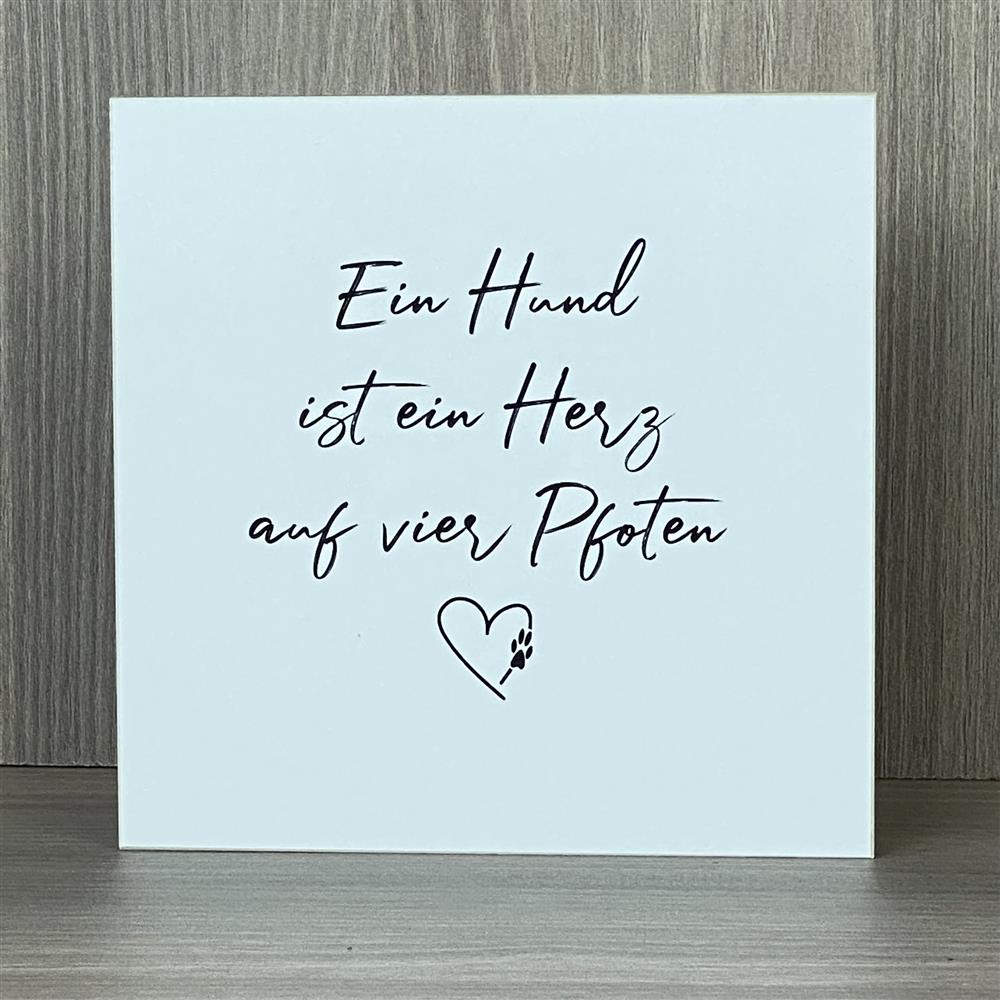 Ein Hund
ist ein Herz
auf vier Pfoten